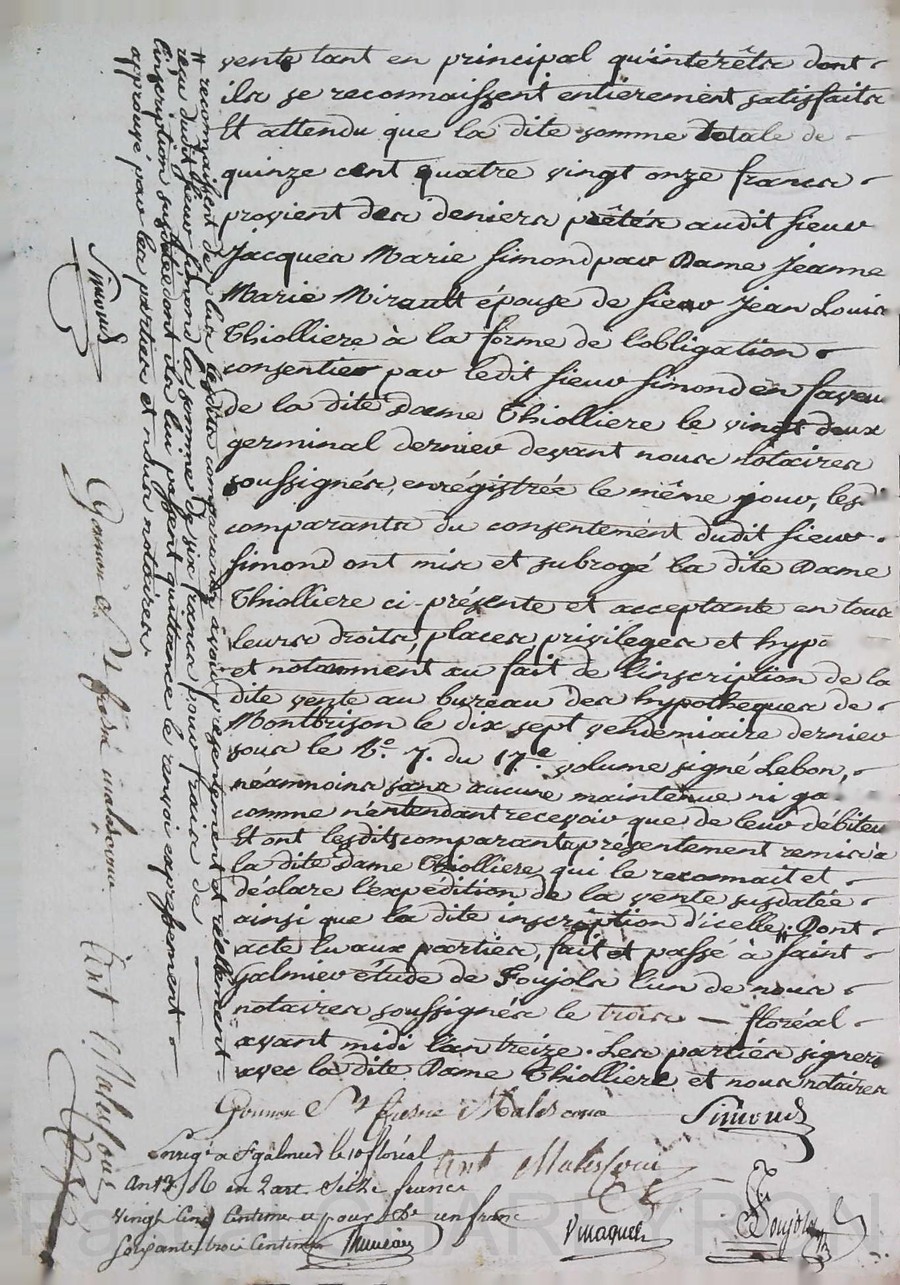 vente tant en principal qu'interêts dont
ils se reconnaissent entierement satisfaits
Et attendu que la dite somme totale de
quinze cent quatre vingt onze francs
provient des deniers prêtés audit sieur
Jacques Marie Simond par Dame Jeanne
Marie Mirault épouse de sieur Jean Louis
Thiolliere à la forme de l'obligation
consentie par ledit sieur Simond en faveu
de la dite Dame Thiolliere le vingt deux
germinal dernier devant nous notaires
soussignés, enrégistrée le même jour, lesd.
comparants du consentement dudit sieur
Simond ont mis et subrogé la dite Dame
Thiolliere ci-présente et acceptante en tous
leurs droits, places privileges et hypo
et notamment au fait de l'inscription de la
dite vente au bureau des hypotheques de
Montbrison le dix sept vendemiaire dernier
sous le N.o 7. du 17.e volume signé Lebon,
néamnoins sans aucune maintenue ni ga
comme n'entendant recevoir que de leur débiteu
Et ont lesdits comparants présentement remis à
la dite Dame Thiolliere qui le reconnait et
déclare l'expédition de la vente susdatée
ainsi que la dite inscription d'icelle # Dont
acte lu aux parties, fait et passé à Saint
galmier étude de Foujols l'un de nous
notaires soussignés le trois — floréal
avant midi l'an treize. Les parties signero
avec la dite Dame Thiolliere et nous notaires
Gonnon St fresne Malescour Simond
Enreg.é a St galmier le 10 floréal
An 13 en 2 art. Seize francs
vingt cinq Centimes et pour un franc
Soixante trois Centimes
ant Malescour
Foujols
# reconnaissent de plus lesdits comparants avoir présentement et réellement
reçu dudit sieur Simond la somme de six francs pour frais de
l'inscription susdatée dont ils lui passent quittance le renvoi expressement
approuvé par les parties et nous notaires.
Simond
Gonnon St fresne malescour
Ant Malescour